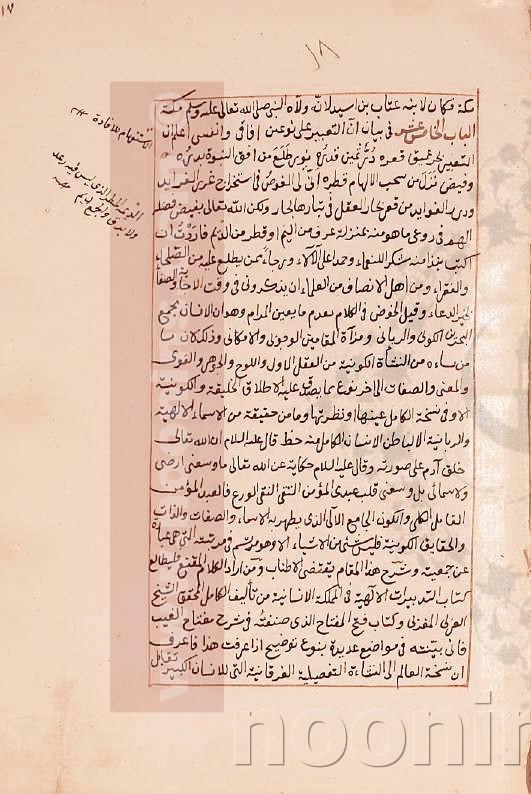 ١٧
١٨
مكة فكان لابنه عتاب بن اسيد لانه ولاه النبى صلى الله تعالى عليه وسلم مكة
الباب الخامس عشر فى بيان ان التعبير على نوعين افاقى وانفسى اعلم ان
التعبير بحر عميق قعره در ثمين قدره نور طلع من افق النبوة بدره
وفيض نزل من سحب الالهام قطره انى لى الغوص فى استخراج غرر الفرايد
ودرر الفوايد من قعر بحار العقل فى تيارها لجار ولكن الله تعالى بفيض فضله
الهم فى روعى ما هو منه بمنزلة غرف من اليم او قطر من الديم فاردت ان
كتب نبذا منه شكرا للنعماء وحمدا على الآلاء ورجاء من يطلع عليه من الصلحاء
والفقراء ومن اهل الانصاف من العلماء ان يذكرونى فى وقت الرخاء والصفا
بخير الدعاء وقبل الخوض فى الكلام نقدم ما يعين المرام وهو ان الانسان مجمع
البحرين الكونى والربانى ومرآة المقامين الوجوبى والامكانى وذلك لان ما
من ساده من النشأة الكونية من العقل الاول واللوح والجوهر والقوى
والمعنى والصفات الى آخر نوع بما يصدق عليه الاطلاق الخليقة والكونية
الا وفى نسخة الكامل عينها او نظيرتها وما من حقيقة من الاسماء الالهية
والربانية الا باطن الانسان الكامل منه حظ قال عليه السلام ان الله تعالى
خلق آدم على صورته وقال عليه السلام حكاية عن الله تعالى ما وسعنى ارضى
ولا سمائى بل وسعنى قلب عبدى المؤمن التقى النقى الورع فالعبد المؤمن
القابل الكلى والكون الجامع الآلى الذى يظهر به الاسماء والصفات والذات
والحقايق الكونية فليس شئ من الاشياء الا وهو مرتسم فى مرتبته التى هى عبارة
عن جمعيته وشرح هذا المقام يقتضى الاطناب ومن اراد الكلام المقنع فليطالع
كتاب التدبيرات الالهية فى المملكة الانسانية من تأليف الكامل المحقق الشيخ
العربى المغربى وكتاب فتح المفتاح الذى صنفته فى شرح مفتاح الغيب
فانى بينته فى مواضع عديدة بنوع توضيح اذا عرفت هذا فاعرف
ان نسخة العالم الى النشاءة التفصيلية الفرقانية التى للانسان الكبير تقابل
الاستفهام للافادة
الديمة المطر الذى ليس فيه رعد
ولا برق والجمع ديم
noonir